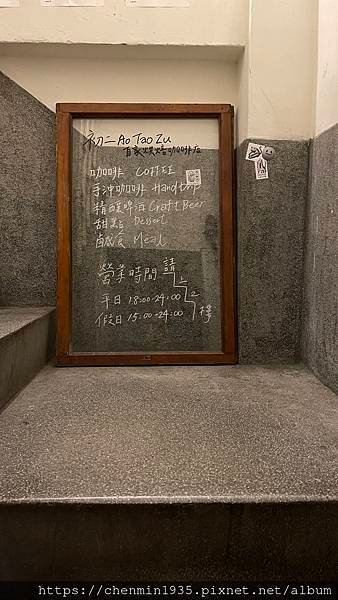 初二 Ao Tao Zu
自家烘焙咖啡店
咖啡 COFFEE
手沖咖啡 Hand drip
精釀啤酒 Craft Beer
甜點 Dessert
鹹食 Meal
營業時間
平日 18:00-24:00
假日 15:00-24:00
請上2樓
https://chenmin1935.pixnet.net/album